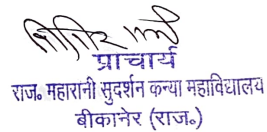 प्राचार्य
राज॰ महारानी सुदर्शन कन्या महाविद्यालय
बीकानेर (राज॰)